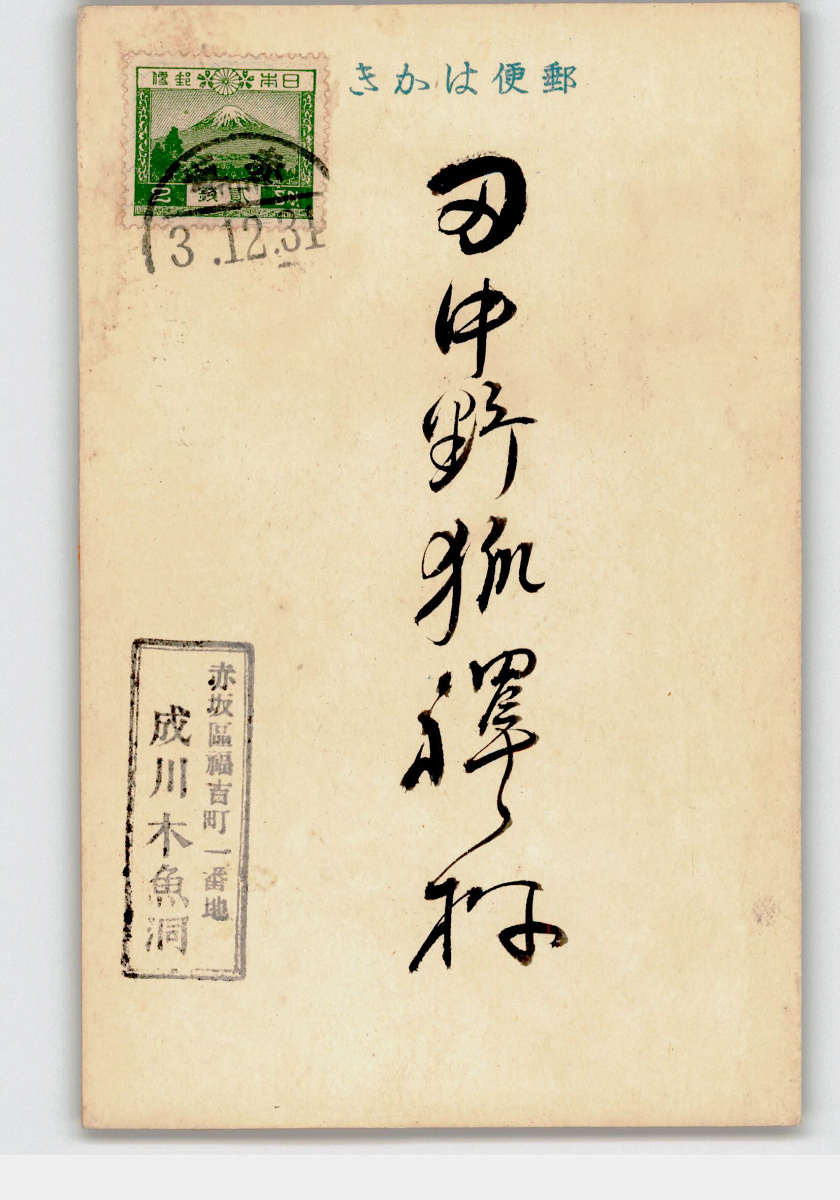 郵便はかき
日本郵便
貳銭
2
3.12.31
田中野狐禪様
赤坂區福吉町一番地
成川木魚洞